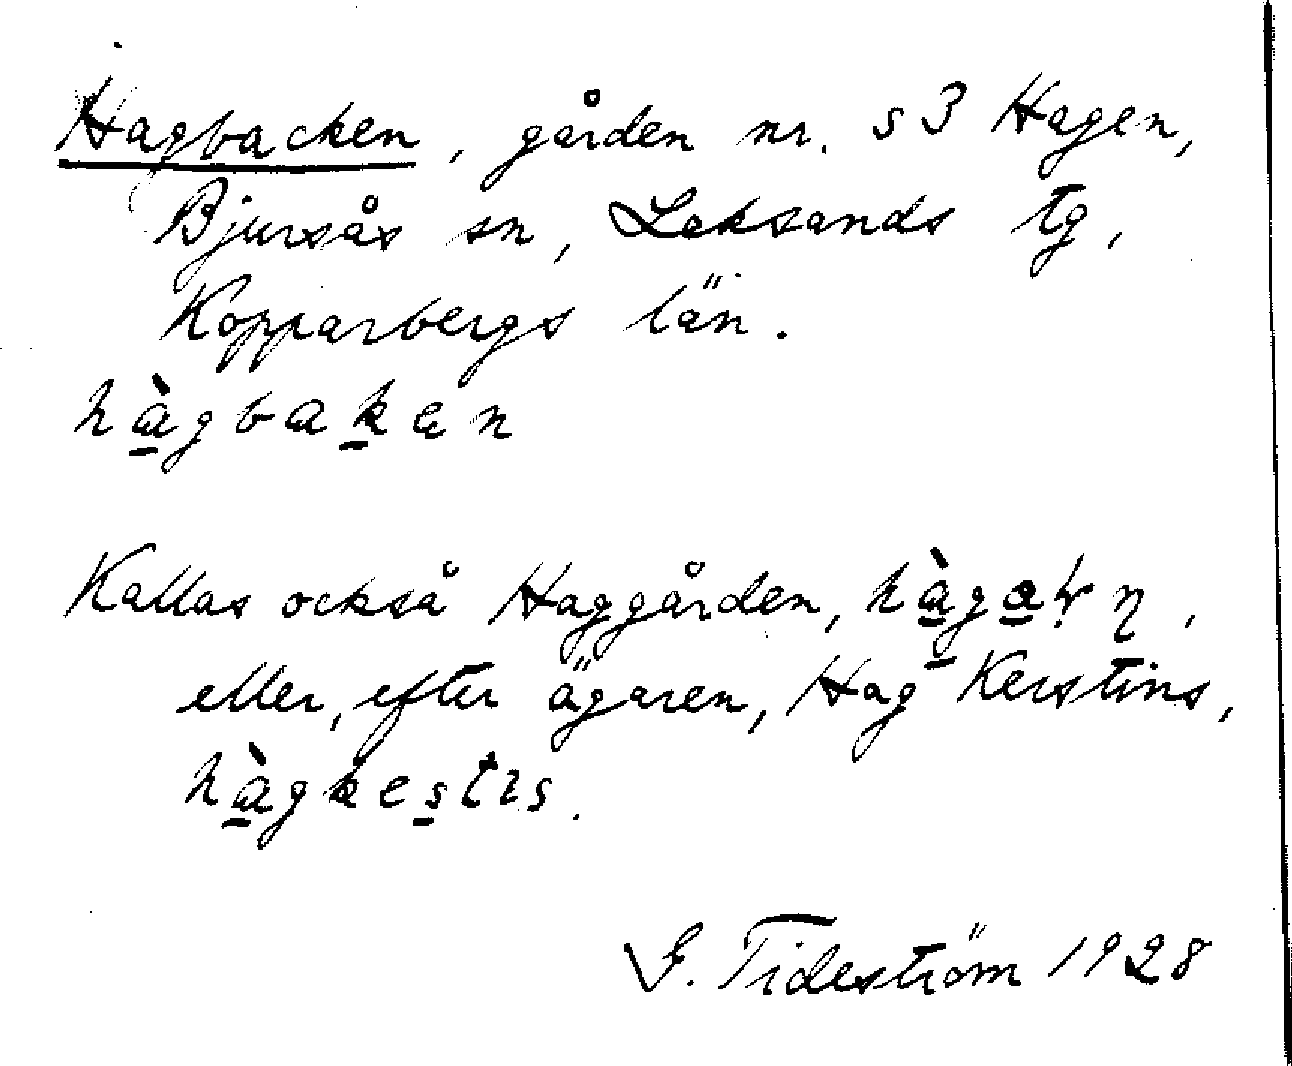 Hagbacken, gården nr. s 3 Hagen,
Bjursås sn, Leksands tg,
Kopparbergs län.
hàgbaken
Kallas också Haggården,
eller, efter ägaren, Hag Kerstins,
hàgkestɩs.
G. Tideström 1928